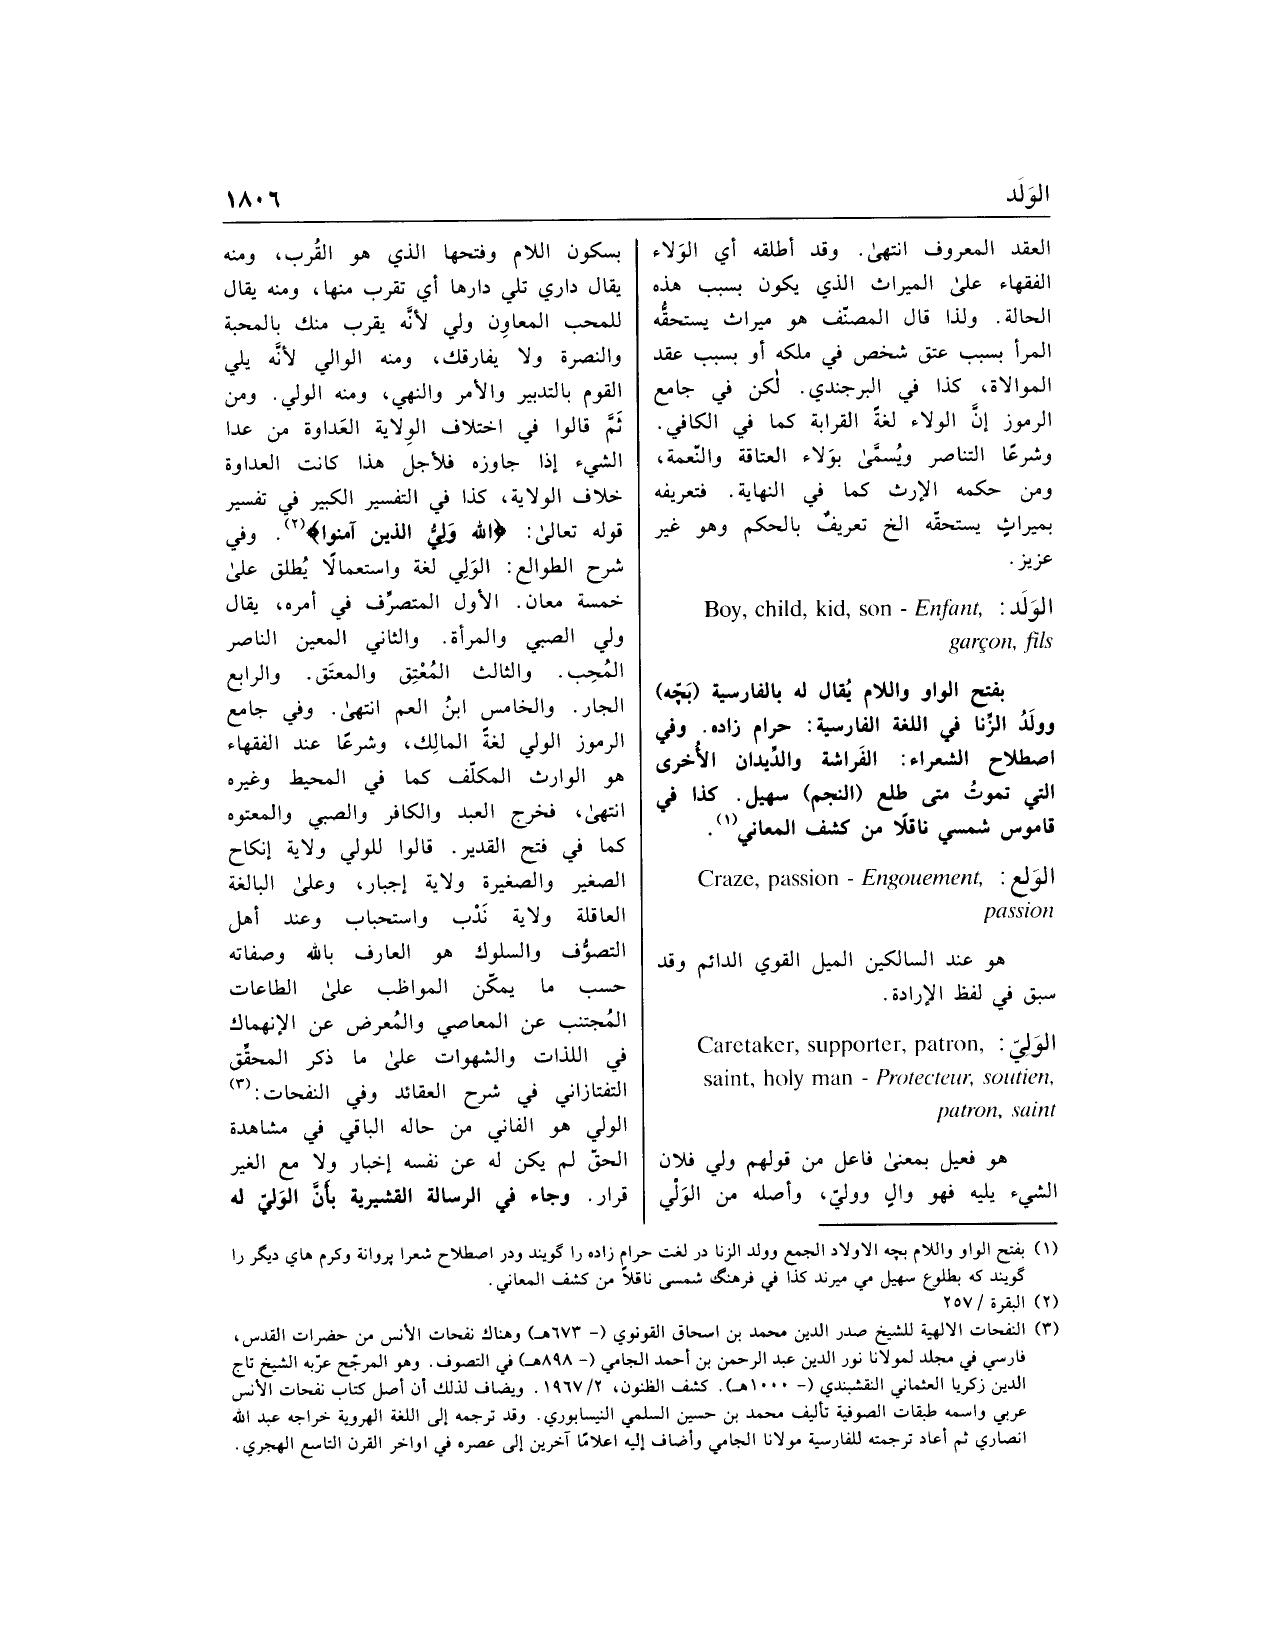 الوَلَد
١٨٠٦
العقد المعروف انتهىٰ. وقد أطلقه أي الوَلاء
الفقهاء علىٰ الميراث الذي يكون بسبب هذه
الحالة. ولذا قال المصنّف هو ميراث يستحقُّه
المرأ بسبب عتق شخص في ملكه أو بسبب عقد
الموالاة، كذا في البرجندي. لٰكن في جامع
الرموز إنَّ الولاء لغةً القرابة كما في الكافي.
وشرعًا التناصر ويُسمَّىٰ بوَلاء العتاقة والنّعمة،
ومن حكمه الإرث كما في النهاية. فتعريفه
بميراثٍ يستحقّه الخ تعريفٌ بالحكم وهو غير
عزيز.
الوَلَد: Boy, child, kid, son - Enfant,
garçon, fils
بفتح الواو واللام يُقال له بالفارسية (بَچّه)
وولَدُ الزِّنا في اللغة الفارسية: حرام زاده. وفي
اصطلاح الشعراء: الفَراشة والدِّيدان الأُخرى
التي تموتُ متى طلع (النجم) سهيل. كذا في
قاموس شمسي ناقلًا من كشف المعاني(١).
الوَلَع: Craze, passion - Engouement,
passion
هو عند السالكين الميل القوي الدائم وقد
سبق في لفظ الإرادة.
الوَليّ: Caretaker, supporter, patron,
saint, holy man - Protecteur, soutien,
patron, saint
هو فعيل بمعنىٰ فاعل من قولهم ولي فلان
الشيء يليه فهو والٍ ووليّ، وأصله من الوَلْي
بسكون اللام وفتحها الذي هو القُرب، ومنه
يقال داري تلي دارها أي تقرب منها، ومنه يقال
للمحب المعاوِن ولي لأنَّه يقرب منك بالمحبة
والنصرة ولا يفارقك، ومنه الوالي لأنَّه يلي
القوم بالتدبير والأمر والنهي، ومنه الولي. ومن
ثَمَّ قالوا في اختلاف الوِلاية العَداوة من عدا
الشيء إذا جاوزه فلأجل هذا كانت العداوة
خلاف الولاية، كذا في التفسير الكبير في تفسير
قوله تعالىٰ: ﴿الله وَلِيُّ الذين آمنوا﴾(٢). وفي
شرح الطوالع: الوَلِي لغة واستعمالًا يُطلق علىٰ
خمسة معان. الأول المتصرِّف في أمره، يقال
ولي الصبي والمرأة. والثاني المعين الناصر
المُحِب. والثالث المُعْتِق والمعتَق. والرابع
الجار. والخامس ابنُ العم انتهىٰ. وفي جامع
الرموز الولي لغةً المالِك، وشرعًا عند الفقهاء
هو الوارث المكلّف كما في المحيط وغيره
انتهىٰ، فخرج العبد والكافر والصبي والمعتوه
كما في فتح القدير. قالوا للولي ولاية إنكاح
الصغير والصغيرة ولاية إجبار، وعلىٰ البالغة
العاقلة ولاية نَدْب واستحباب وعند أهل
التصوُّف والسلوك هو العارف بالله وصفاته
حسب ما يمكّن المواظب علىٰ الطاعات
المُجتنب عن المعاصي والمُعرض عن الإنهماك
في اللذات والشهوات علىٰ ما ذكر المحقِّق
التفتازاني في شرح العقائد وفي النفحات:(٣)
الولي هو الفاني من حاله الباقي في مشاهدة
الحقّ لم يكن له عن نفسه إخبار ولا مع الغير
قرار. وجاء في الرسالة القشيرية بأنَّ الوَليّ له
(١) بفتح الواو واللام بچه الاولاد الجمع وولد الزنا در لغت حرام زاده را گويند ودر اصطلاح شعرا پروانة وكرم هاي ديگر را
گويند كه بطلوع سهيل مي ميرند كذا في فرهنگ شمسى ناقلاً من كشف المعاني.
(٢) البقرة / ٢٥٧
(٣) النفحات الالهية للشيخ صدر الدين محمد بن اسحاق القونوي (- ٦٧٣هـ) وهناك نفحات الأنس من حضرات القدس،
فارسي في مجلد لمولانا نور الدين عبد الرحمن بن أحمد الجامي (- ٨٩٨هـ) في التصوف. وهو المرجّح عرّبه الشيخ تاج
الدين زكريا العثماني النقشبندي (- ١٠٠٠هـ). كشف الظنون، ٢/ ١٩٦٧. ويضاف لذلك أن أصل كتاب نفحات الأنس
عربي واسمه طبقات الصوفية تأليف محمد بن حسين السلمي النيسابوري. وقد ترجمه إلى اللغة الهروية خراجه عبد الله
انصاري ثم أعاد ترجمته للفارسية مولانا الجامي وأضاف إليه اعلامًا آخرين إلى عصره في اواخر القرن التاسع الهجري.